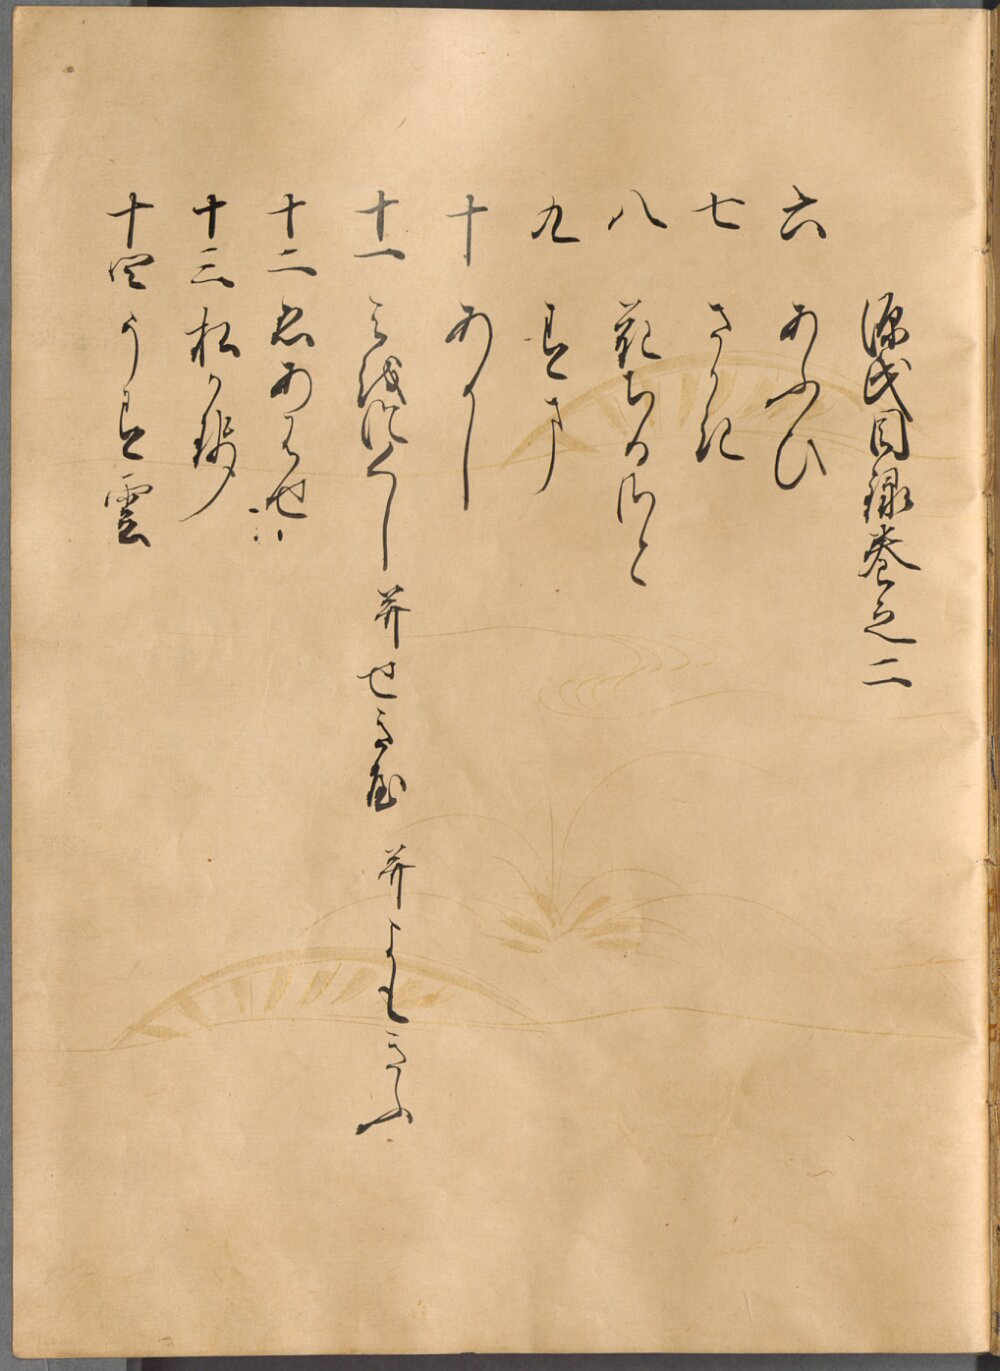 源氏目録巻之二
六 あふひ
七 さかき
八 花ちる里
九 すま
十 あかし
十一 みをつくし 并せき屋 并よもきふ
十二 ゑあはせ
十三 松か風
十四 うす雲